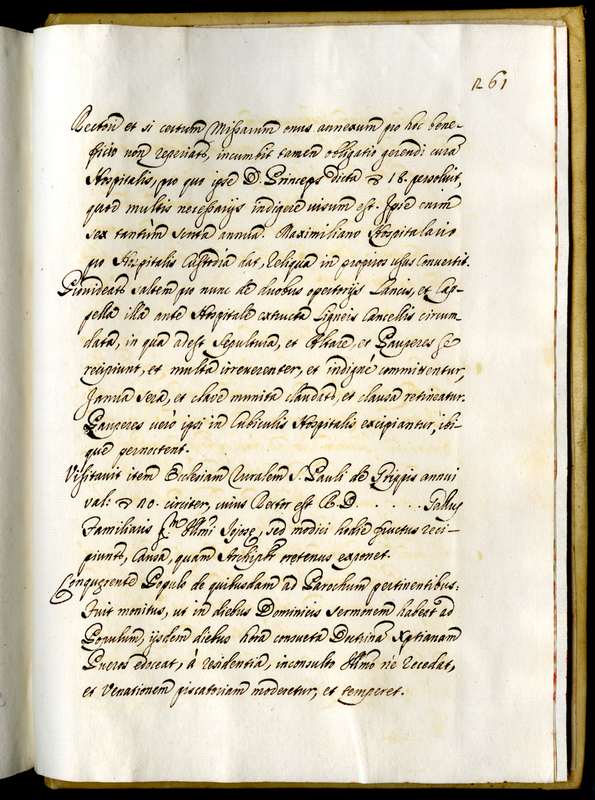 261
Rectorū et si certum Missarum onus annexum pro hoc bene-
ficio non reperiatᵣ, incumbit tamen obligatio gerendi curā
Hospitalis, pro quo ipse D. Princeps dicta 18. persoluit,
quare multis necessarijs indigere uisum est. Ipse enim
sex tantùm scuta annua Maximiliano Hospitalario
pro Hospitalis Custodia dat, reliqua in proprios usus conuertit.
Prouideatᵣ saltem pro nunc de duobus opertorijs Laneis, et Cap-
pella illa ante Hospitale extructa ligneis cancellis circum-
data, in qua adest sepultura, et Altare, et Pauperes se
recipiunt, et multa irreuerenter, et indignè committentur,
Janua sera, et claue munita claudatᵣ, et clausa retineatur.
Pauperes uerò ipsi in Cubiculis Hospitalis excipiantur, ibi-
que pernoctent.
Visitauit item Ecclesiam ruralem S. Pauli de Prippis annui
val: 20. circiter, cuius Rector est R. D. . . . . Gallus
Familiaris Illmi sed modici hodie fructus reci-
piuntᵣ, causa, quam Archipbr oretenus exponet.
Conquerente Populo de quibusdam ad Parochum pertinentibus:
Fuit monitus, ut in diebus Dominicis sermonem habeat ad
Populum, ijsdem diebus hora consueta Doctrinā Xptianam
Pueros edoceat, à residentia, inconsulto Illmo nè recedat,
et Venationem piscatoriam moderetur, et temperet.